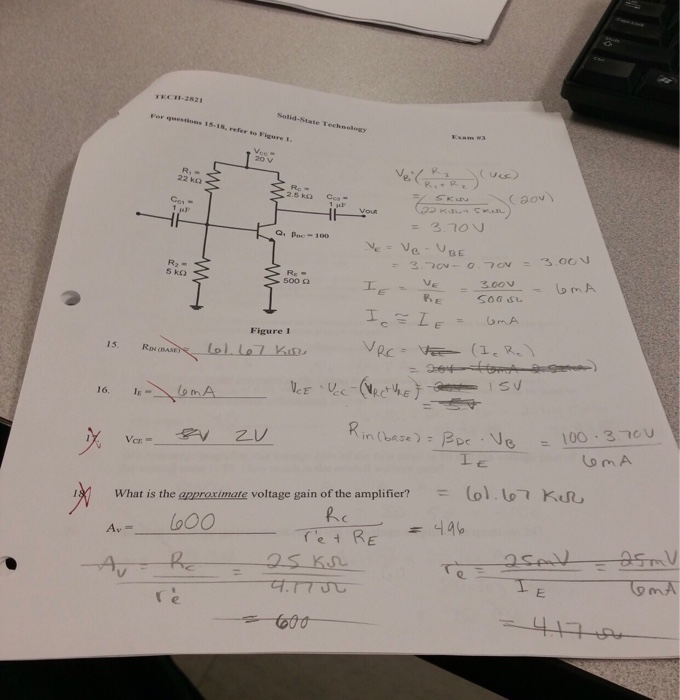 TECH-2821
Solid-State Technology
Exam #3
For questions 15-18, refer to Figure 1.
VCC =
20 V
R1 =
22 kΩ
RC =
2.5 kΩ
CC1 =
1 uF
CC2 =
1 uF
Vout
Q1 βDC = 100
R2 =
5 kΩ
RE =
500 Ω
Figure 1
VB = (R2 / R1 + R2) (VCC)
= (5KΩ / 22KΩ + 5KΩ) (20V)
= 3.70V
VE = VB - VBE
= 3.70V - 0.70V = 3.00V
IE = VE / RE = 3.00V / 500Ω = 6mA
IC ≅ IE = 6mA
VRC = (IC RC)
15. RIN(BASE) = 61.67 KΩ
16. IE = 6mA
VCE = VCC - (VRC + VRE) = 15V
= 5V
17. VCE = 5V 2V
Rin(base) = βDC · VB / IE = 100 · 3.70V / 6mA
= 61.67 KΩ
18. What is the approximate voltage gain of the amplifier?
AV = 600
RC / r'e + RE = 4.96
AV = RC / r'e = 25 KΩ / 4.17Ω
= 600
r'e = 25mV / IE = 25mV / 6mA
= 4.17Ω